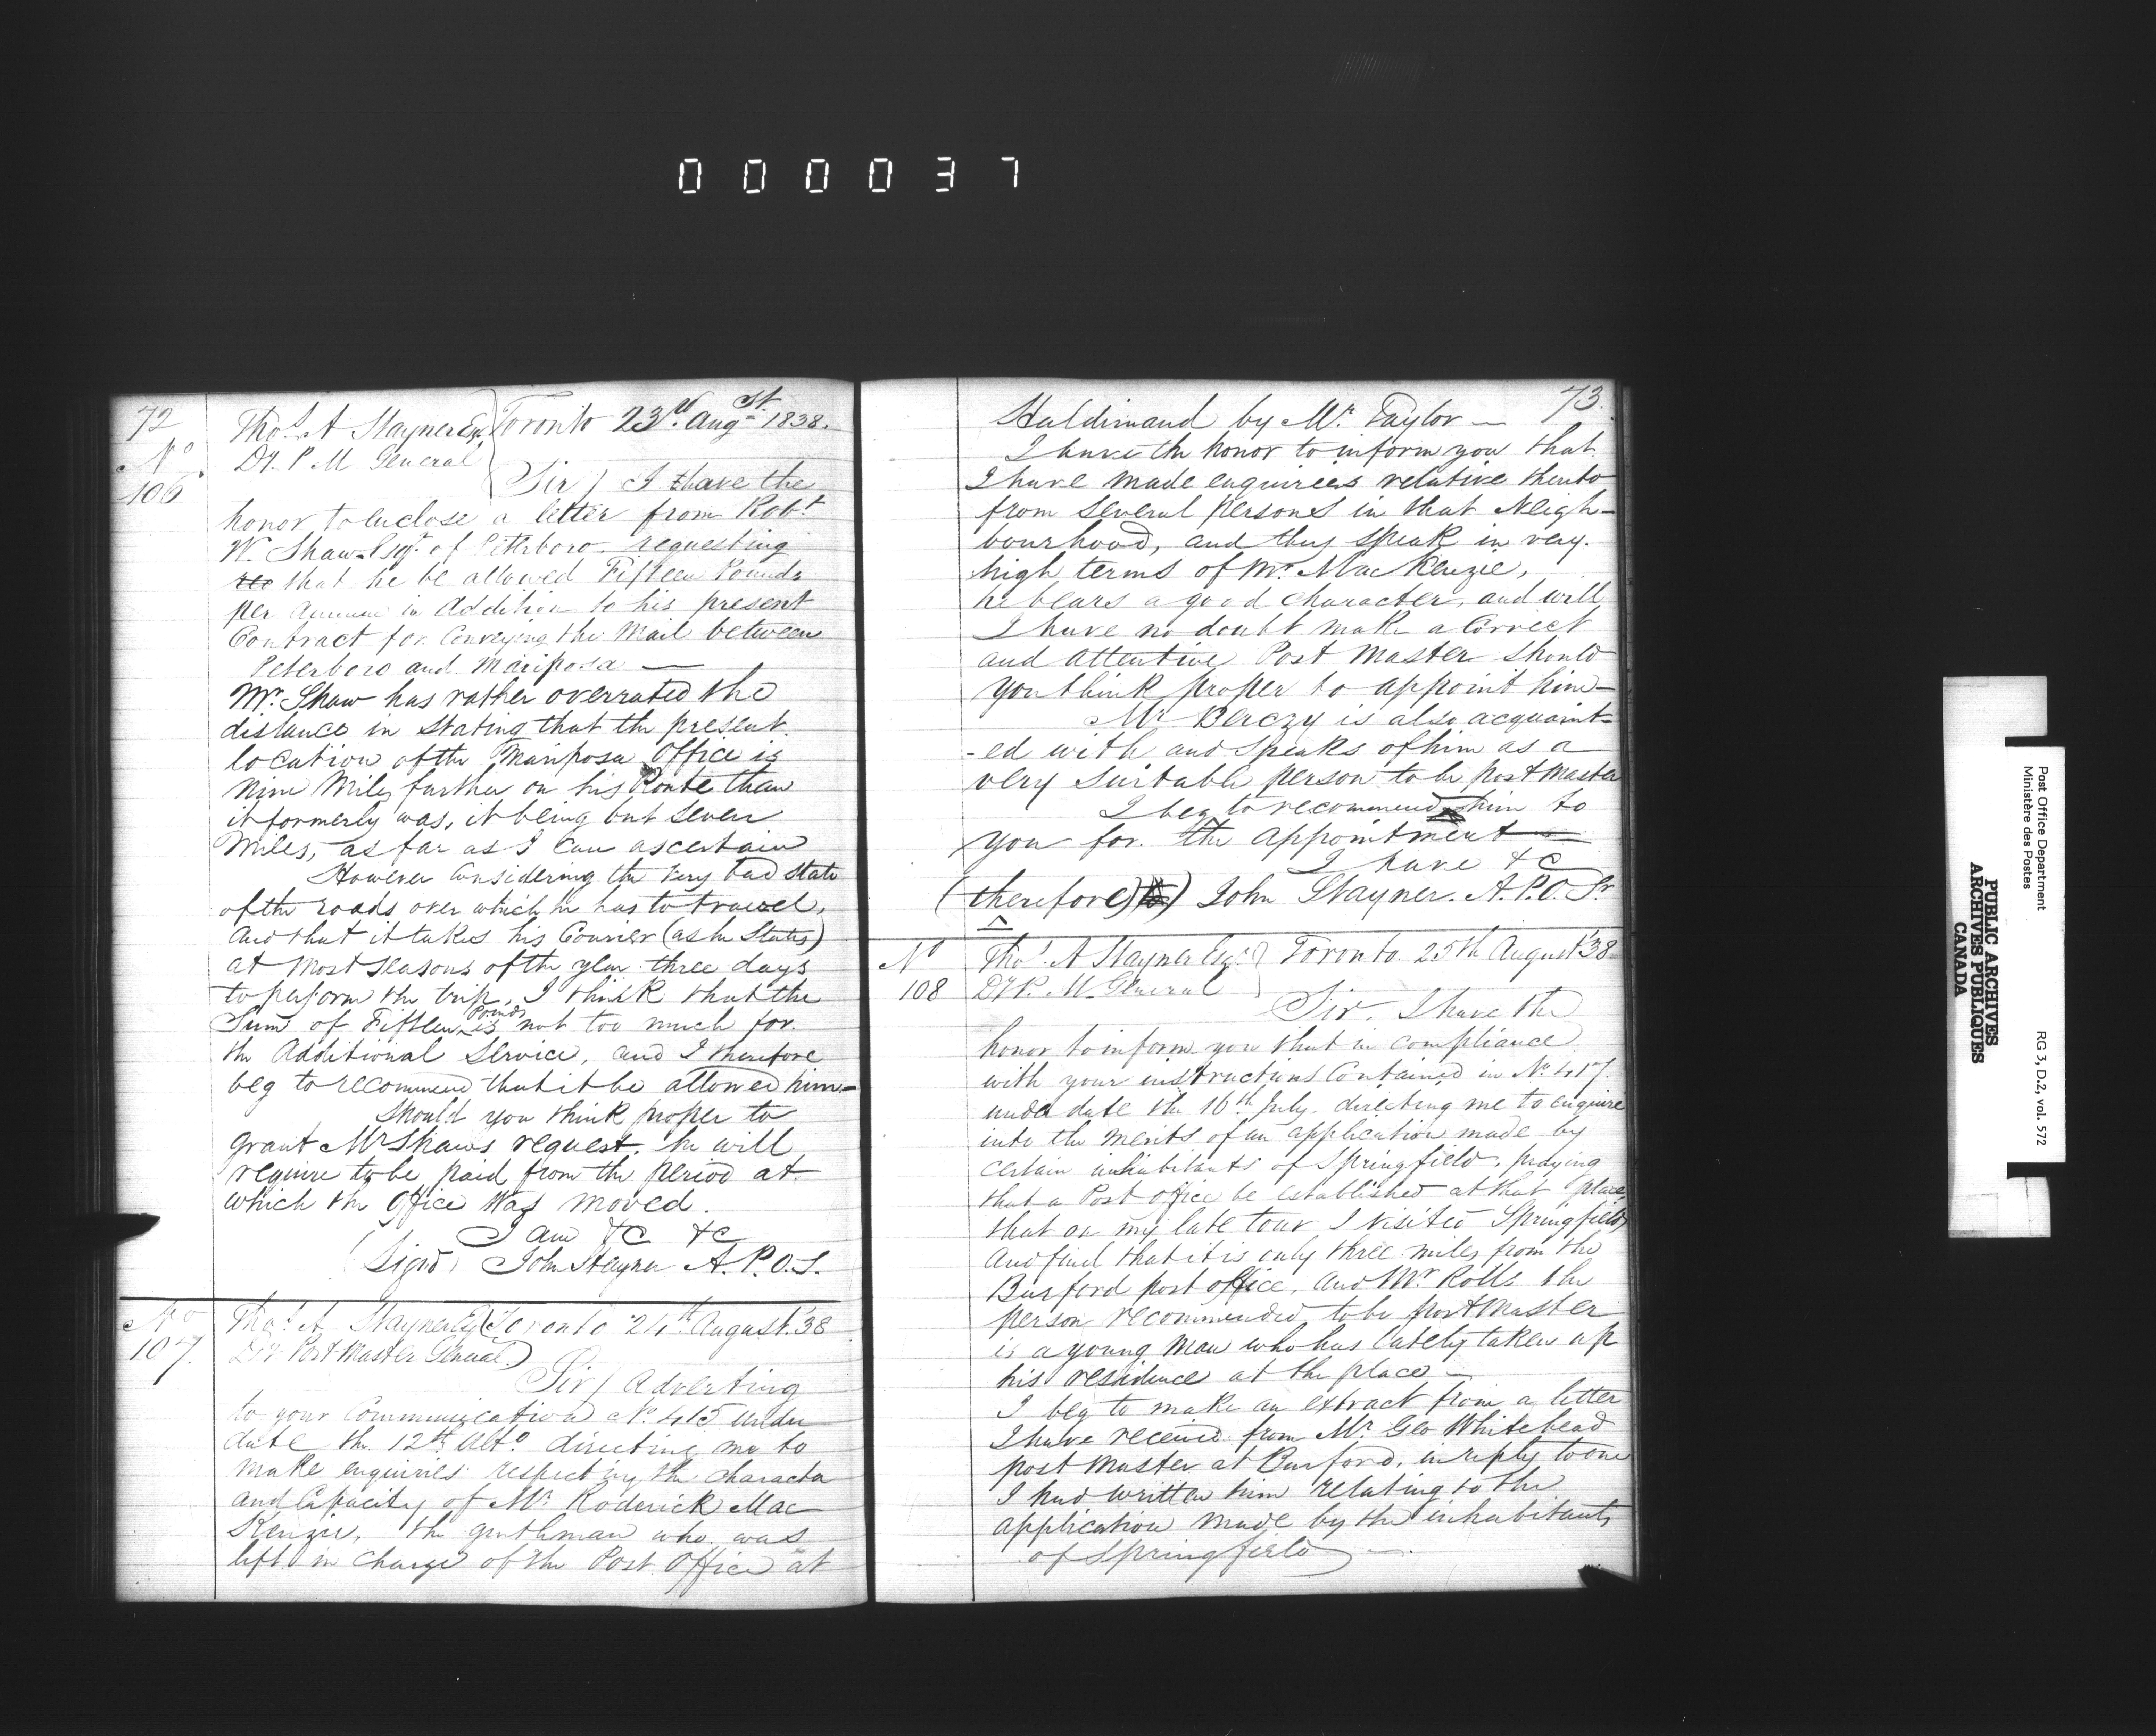 000037
72
Thos. A Stayner Esq. Toronto 23rd. Augst 1838.
No
106
Dy. P M General
Sir / I have the
honor to enclose a letter from Robt
W. Shaw Esqr. of Peterboro. requesting
that he be allowed Fifteen Pounds
per annum in Addition to his present
Contract for Conveying the Mail between
Peterboro and Mariposa —
Mr. Shaw has rather overrated the
distance in stating that the present
location of the Mariposa Office is
Nine Miles further on his Route than
it formerly was, it being but seven
Miles, as far as I can ascertain
However Considering the very bad state
of the roads over which he has to travel,
And that it takes his Courier (as he States)
at most seasons of the year three days
to perform the trip, I think that the
Sum of Fifteen Pounds is not too much for
the Additional Service, and I therefore
beg to recommend that it be allowed him—
Should you think proper to
grant Mr Shaws request, he will
require to be paid from the period at
which the Office was moved.
I am &C &C
(Signd) John Stayner A. P. O. S.
No
107.
Thos. A Stayner Esq Toronto 24th August. '38
Dy Post Master General.)
Sir / Adverting
to your Communication No. 415 under
date the 12th Ulto. directing me to
make enquiries respecting the character
and Capacity of Mr. Roderick Mac
Kenzie, the gentleman who was
left in charge of the Post Office at
73.
Haldimand by Mr Taylor —
I have the honor to inform you that
I have made enquiries relative thereto
from several persons in that Neigh-
bourhood, and they speak in very
high terms of Mr. MacKenzie,
he bears a good character, and will
I have no doubt make a Correct
and attentive Post Master should
you think proper to appoint him—
Mr Berczy is also acquaint-
-ed with and speaks of him as a
very suitable person to be post master
I beg to recommend him to
you for the appointment —
I have &C
(therefore) John Stayner. A. P. O. Sr
No
108
Thos. A Stayner Esqr. Toronto 25th August '38
Dy P. M. General
Sir. I have the
honor to inform you that in compliance
with your instructions Contained in No. 417.
under date the 16th July. directing me to enquire
into the merits of an application made by
certain inhabitants of Springfield, praying
that a Post Office be established at that place,
that on my late tour I visited Springfield
And find that it is only three miles from the
Burford post office, And Mr Rolls the
person recommended to be post Master
is a young man who has lately taken up
his residence at the place —
I beg to make an extract from a letter
I have received from Mr Geo Whitehead
post Master at Burford, in reply to one
I had written him relating to the
application made by the inhabitants
of Springfield —
Post Office Department
Ministère des Postes
RG 3, D.2, vol. 572
PUBLIC ARCHIVES
ARCHIVES PUBLIQUES
CANADA